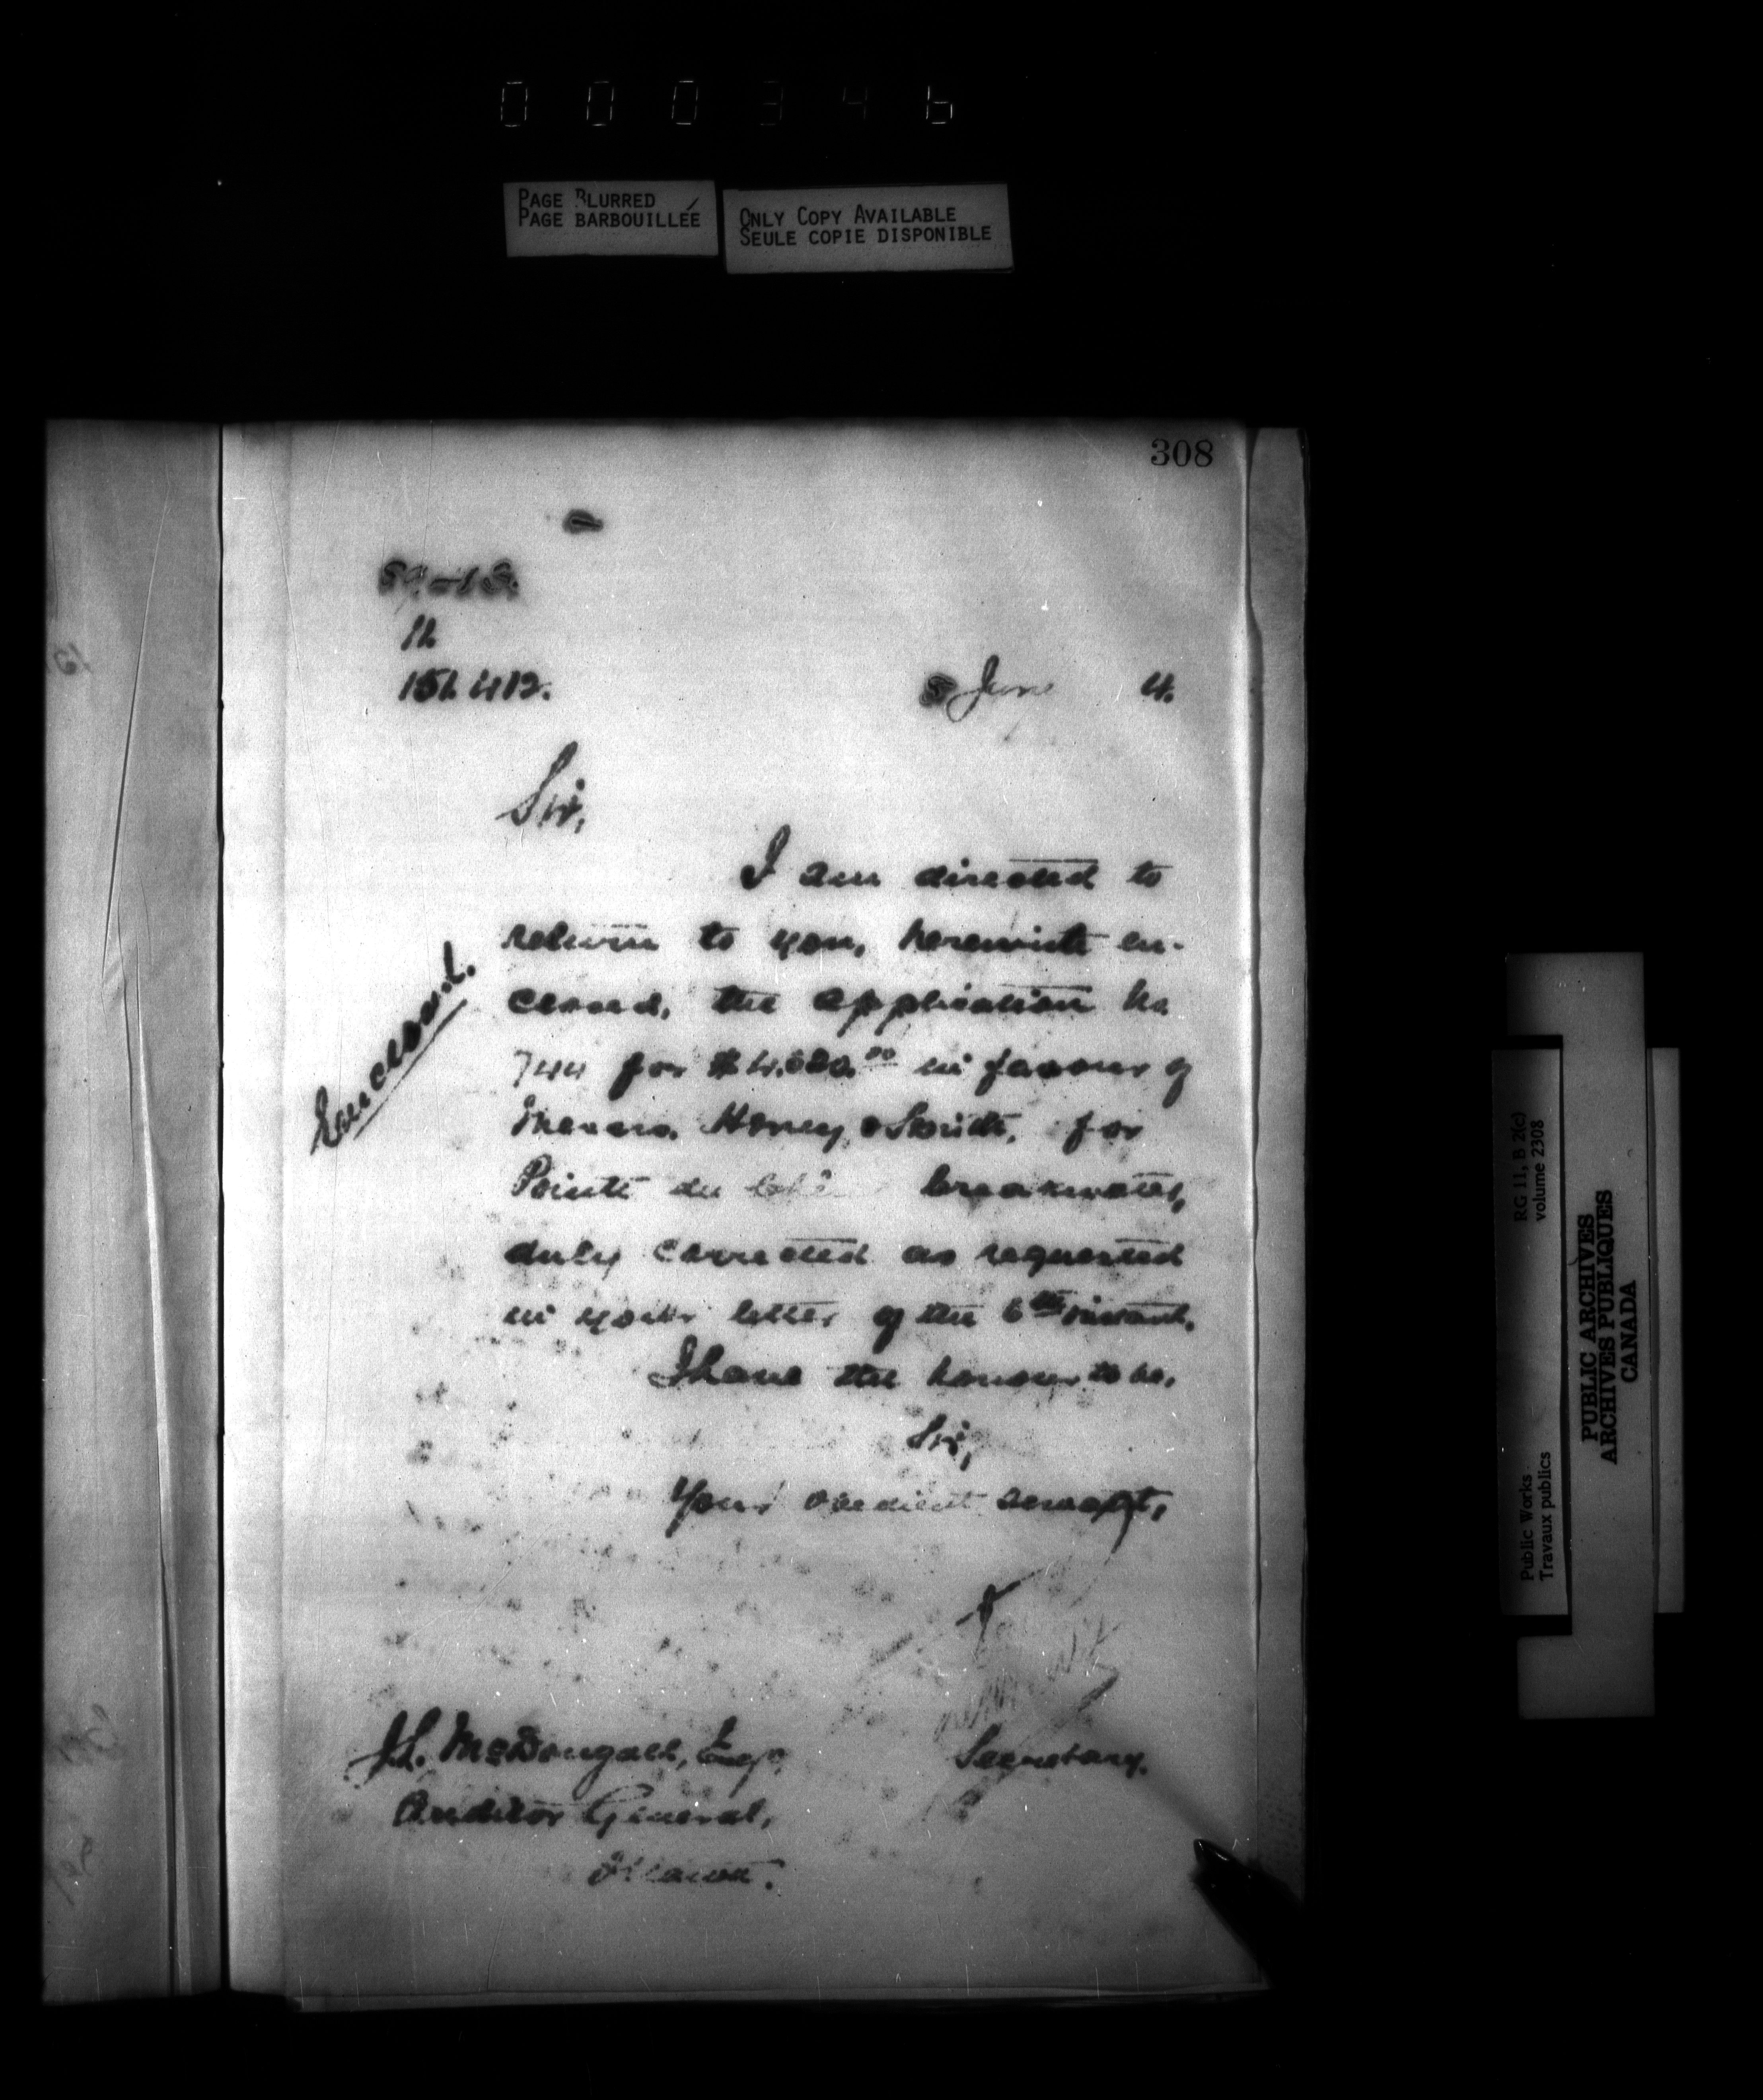 0 0 0 3 4 6
PAGE BLURRED
PAGE BARBOUILLÉE
ONLY COPY AVAILABLE
SEULE COPIE DISPONIBLE
308
June 4.
Sir,
I am directed to
return to you, herewith en-
closed, the application No
744 for in favour of
Messrs. & Smith, for
Pointe du breakwater,
duly corrected as requested
in your letter of the 6th instant.
I have the honour to be,
Sir,
Your obedient servant,
Enclosed.
Secretary.
J.L. McDougall, Esq.
Auditor General,
Ottawa.
RG 11, B 2(c)
volume 2308
Public Works
Travaux publics
PUBLIC ARCHIVES
ARCHIVES PUBLIQUES
CANADA